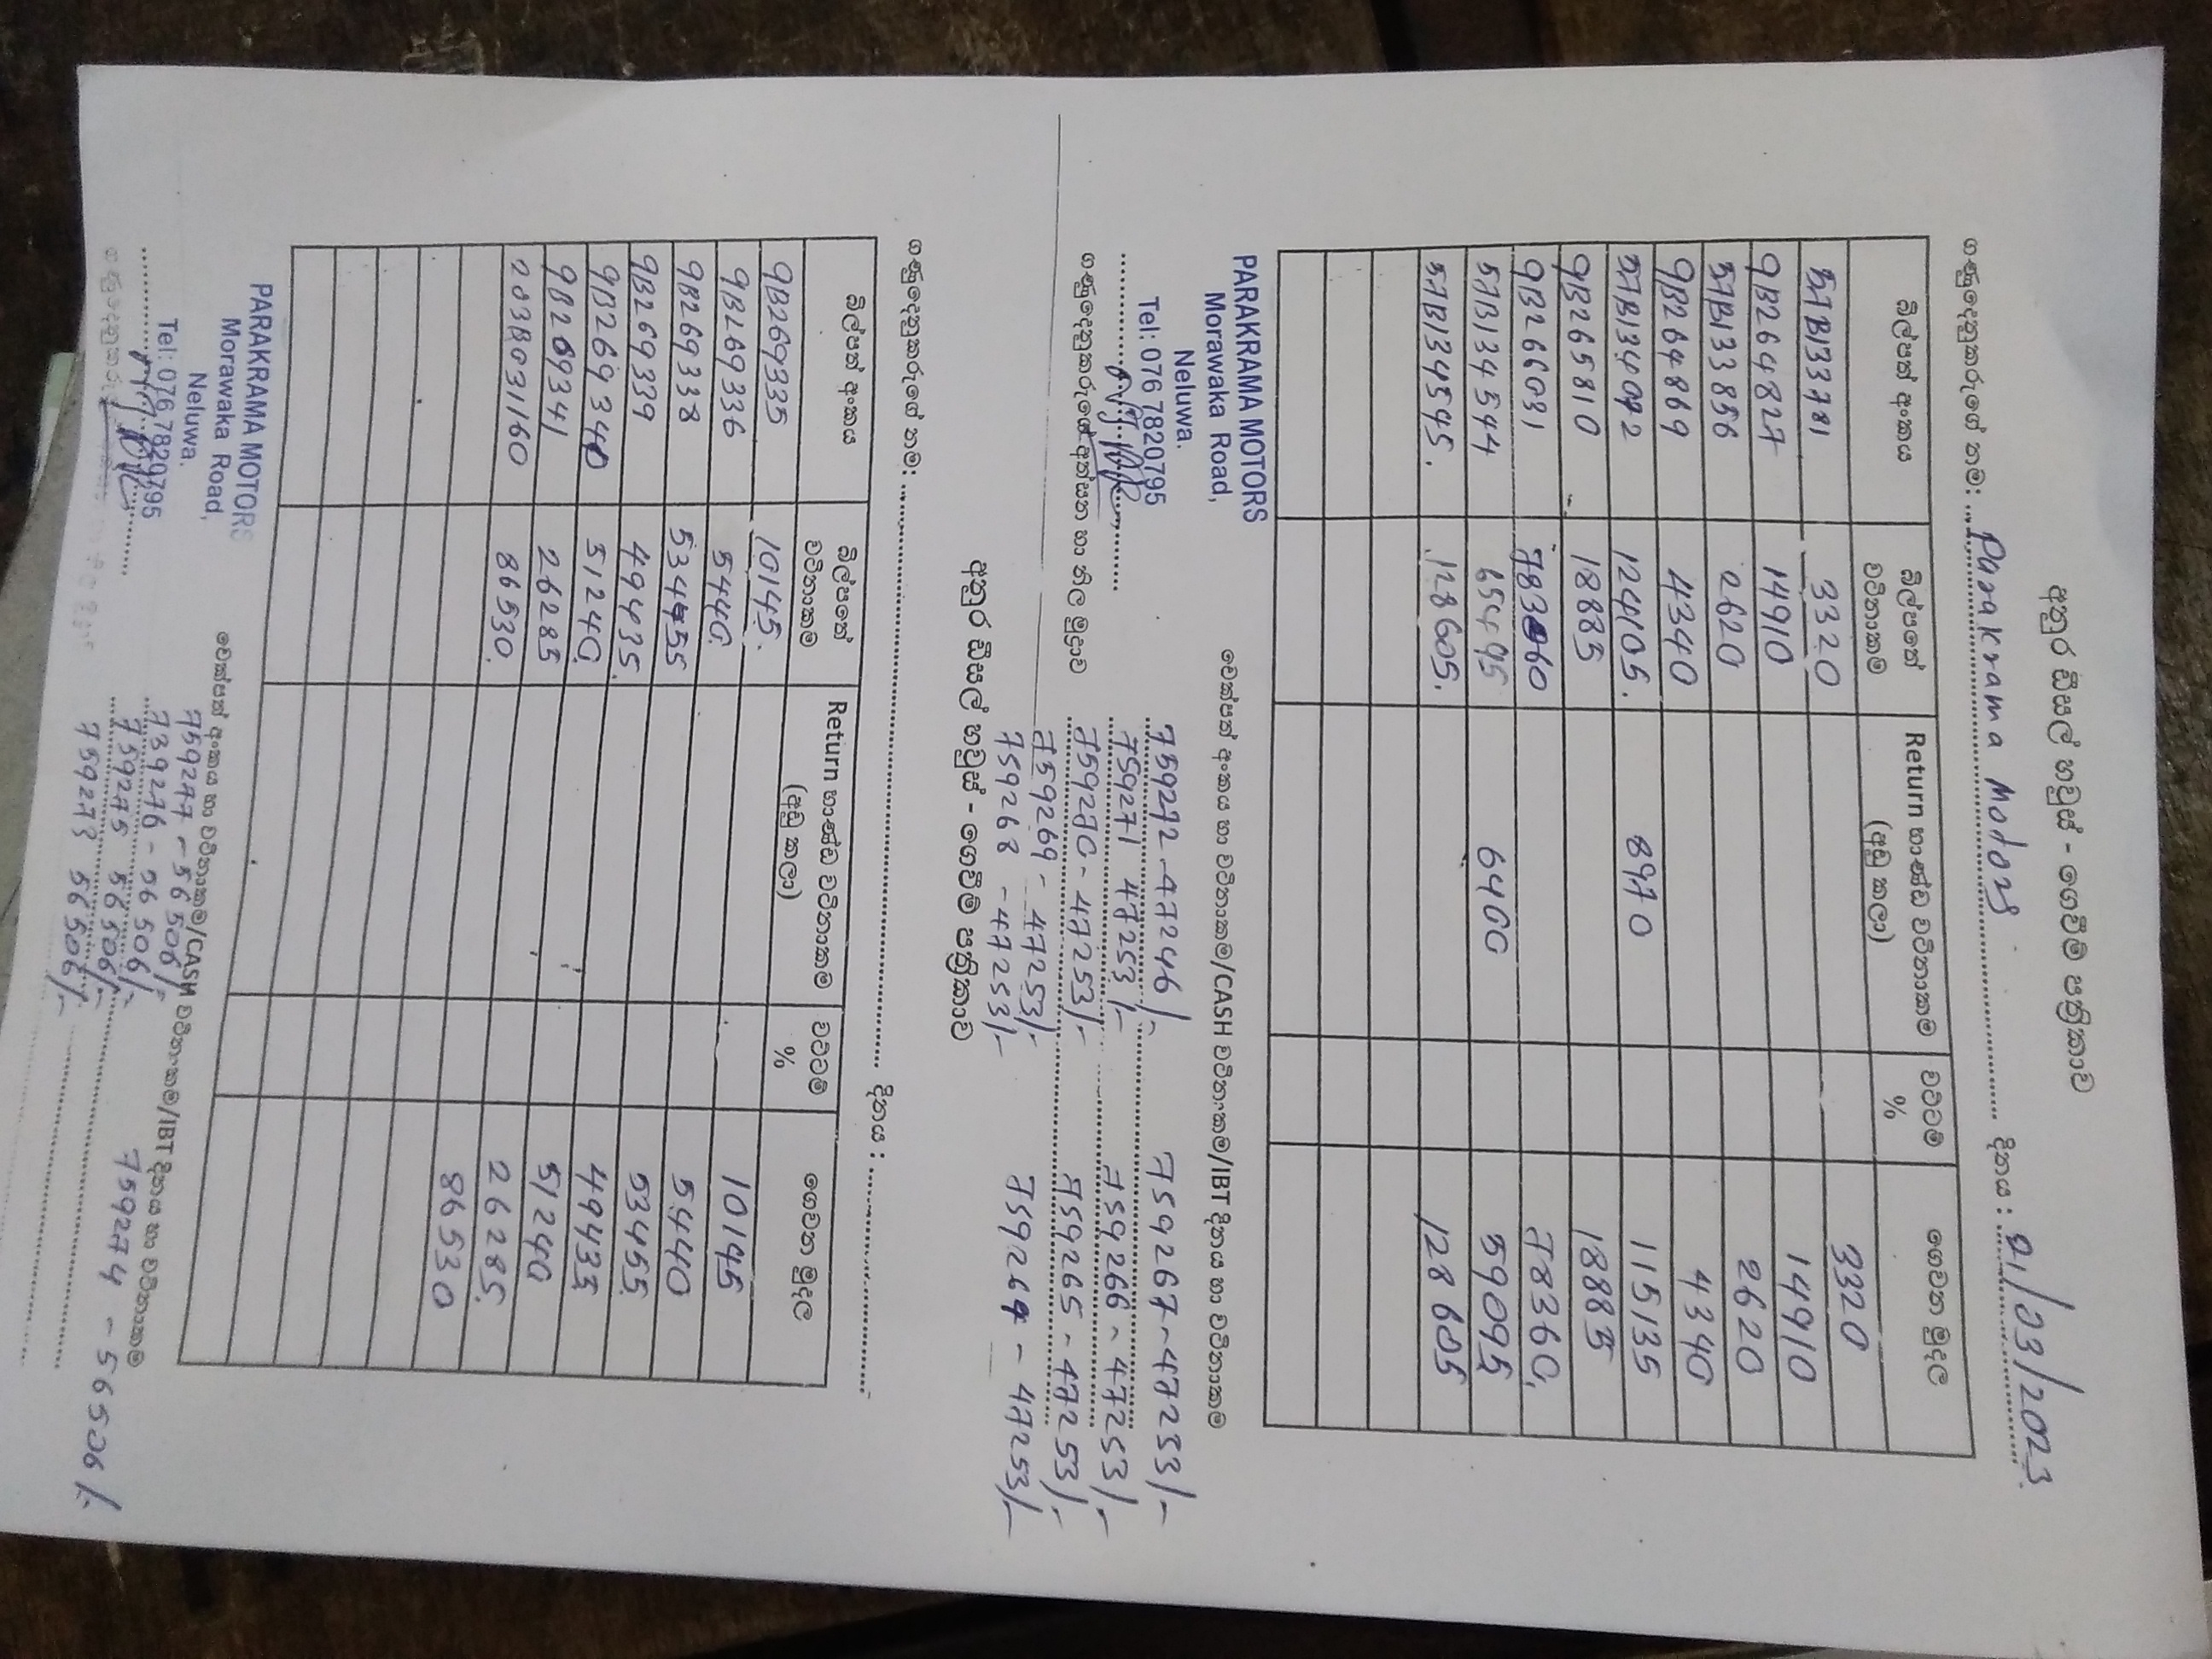 අනුර ඩීසල් හවුස් - ගෙවීම් පත්‍රිකාව
ගණුදෙනුකරුගේ නම: Parakrama Motors දිනය : 01/03/2023
බිල්පත් අංකය බිල්පතේ වටිනාකම Return භාණ්ඩ වටිනාකම (අඩු කලා) වට්ටම් % ගෙවන මුදල
5AB133781 3320 3320
9B264827 14910 14910
5AB133856 2620 2620
9B264869 4340 4340
5AB134092 124105. 8970 115135
9B265810 18885 18885
9B266031 78360 78360
5AB134544 65495 6400 59095
5AB134545. 128605. 128605
PARAKRAMA MOTORS
Morawaka Road,
Neluwa.
Tel: 076 7820795
ගණුදෙනුකරුගේ අත්සන හා නිල මුද්‍රාව
චෙක්පත් අංකය හා වටිනාකම/CASH වටිනාකම/IBT දිනය හා වටිනාකම
759272 - 47246/- 759267 - 47253/-
759271 47253/- 759266 - 47253/-
759270 - 47253/- 759265 - 47253/-
759269 - 47253/- 759264 - 47253/-
759268 - 47253/-
අනුර ඩීසල් හවුස් - ගෙවීම් පත්‍රිකාව
ගණුදෙනුකරුගේ නම: දිනය :
බිල්පත් අංකය බිල්පතේ වටිනාකම Return භාණ්ඩ වටිනාකම (අඩු කලා) වට්ටම් % ගෙවන මුදල
9B269335 10145. 10145
9B269336 5440. 5440
9B269338 53455 53455
9B269339 49435. 49435
9B269340 51240 51240
9B269341 26285 26285.
203B031160 86530. 86530
PARAKRAMA MOTORS
Morawaka Road,
Neluwa.
Tel: 076 7820795
චෙක්පත් අංකය හා වටිනාකම/CASH වටිනාකම/IBT දිනය හා වටිනාකම
759277 - 56506/-
759276 - 56506/-
759275 56506/- 759274 - 56506/-
759273 56506/-